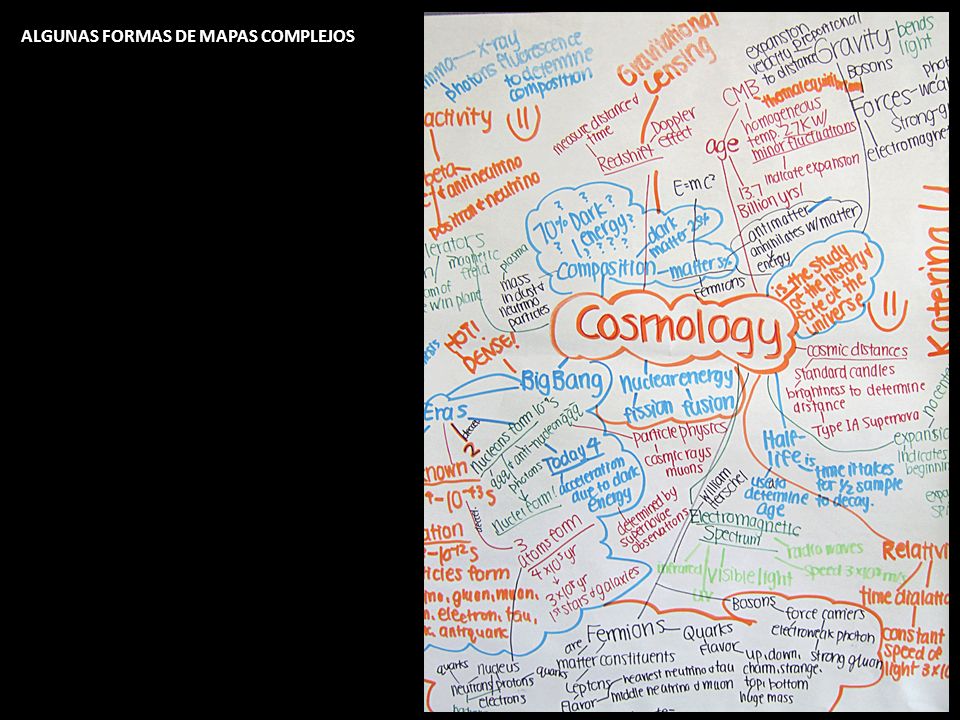 ALGUNAS FORMAS DE MAPAS COMPLEJOS
x-ray
photons fluorescence
to determine
composition
Gravitational
Lensing
expansion
velocity proportional
to distance
Gravity
bends
light
Bosons
CMB
thermal
homogeneous
temp. 2.7K w/
minor fluctuations
indicate expansion
age
13.7
Billion yrs!
Forces-
electromagnet
measure distance &
time
Redshift
Doppler
effect
E=mc²
antineutrino
positron & neutrino
magnetic
field
plasma
mass
in dust &
neutrino
particles
70% Dark
energy?
dark
matter 25%
composition
matter 5%
antimatter
annihilates w/matter
energy
Fermions
is the study
of the history &
fate of the
universe
Katerina
Cosmology
HOT!
DENSE!
Big Bang
nuclear energy
fission fusion
cosmic distances
standard candles
brightness to determine
distance
Type IA Supernova
Eras
2
Nucleons form 10⁻⁴s
photons
Nuclei form!
Today 4
acceleration
due to dark
energy
particle physics
cosmic rays
muons
determined by
supernovae
observations
William
Herschel
Half-
Life is
time it takes
for ½ sample
to decay.
used to
determine
age
3
atoms form
4×10⁵yr
3×10⁸yr
1st stars & galaxies
Electromagnetic
Spectrum
infrared
visible light
UV
radio waves
speed 3×10⁸m/s
Relativi
time dialati
constant
speed of
light 3×10
Fermions
are
matter constituents
Quarks
Flavor
up, down,
charm, strange,
top, bottom
huge mass
Leptons
Flavor
heaviest neutrino & tau
middle neutrino & muon
Bosons
force carriers
electroweak photon
strong gluon
quarks
nucleus
neutrons protons
quarks
electrons